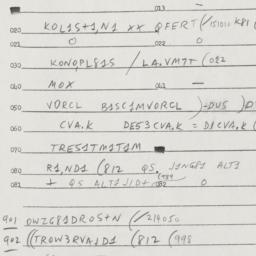 013 —
020 KOL1S+1,N1 xx QFERT (/151011 K81
021 0 022 0
030 KONQPL81S / LA.VM7T (082
040 MOX
050 VORCL B1SC1MVORCL )-DUS )D
060 CVA.K DE53CVA.K = D8CVA.K (
070 TRES1TM1T1M
080 R1,ND1 (812 QS. J1NG81 ALT3
081 + QS ALT1J1D+ 082 0
901 OWZG81DROS+N (/214050
902 ((TROW3RVA1D1 (812 (998